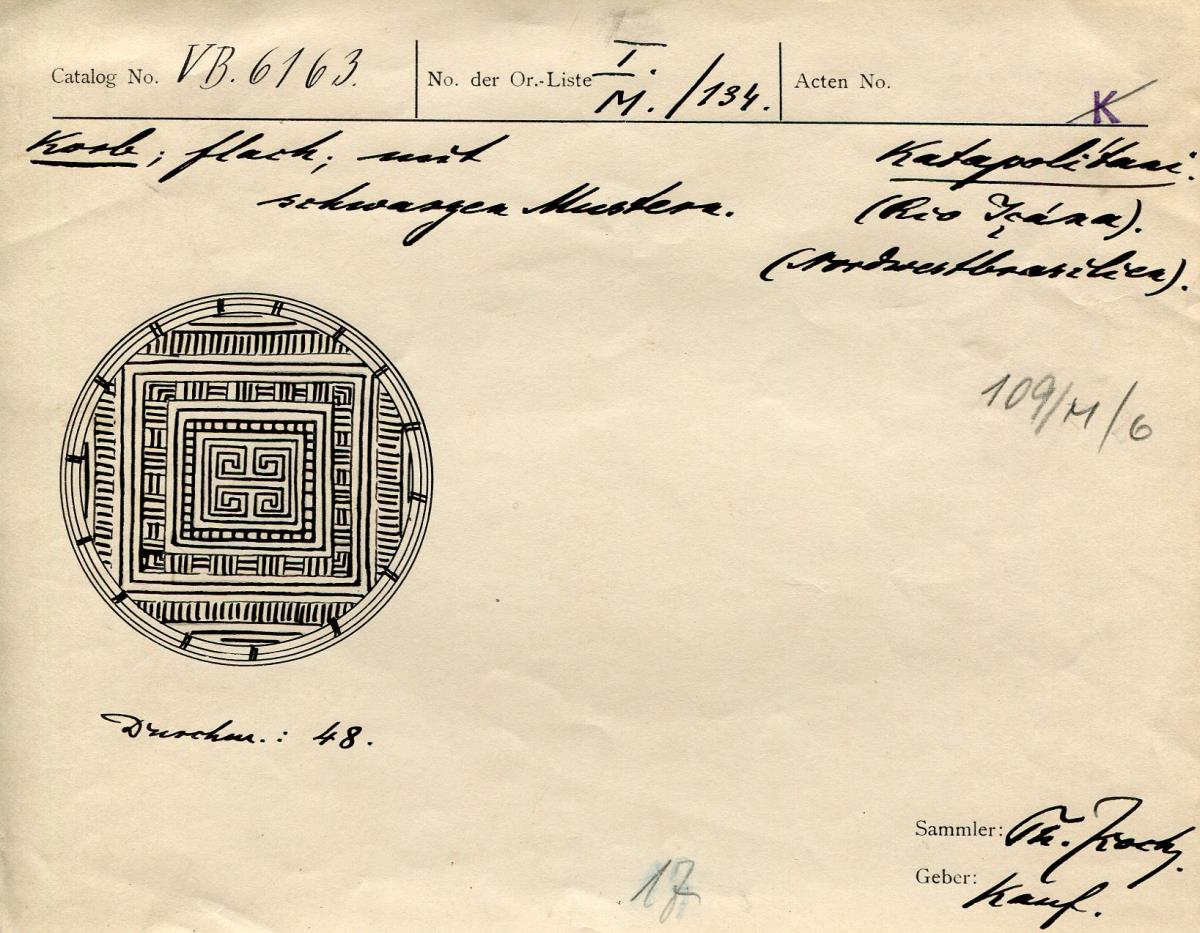 Catalog No. VB. 6163. No. der Or.-Liste I. M. /134. Acten No.
K
Korb; flach; mit
schwarzen Mustern.
Katapolítani.
(Rio Içána).
(Nordwestbrasilien).
109/M/6
Durchm.: 48.
Sammler: Th. Koch.
Geber: Kauf.
17